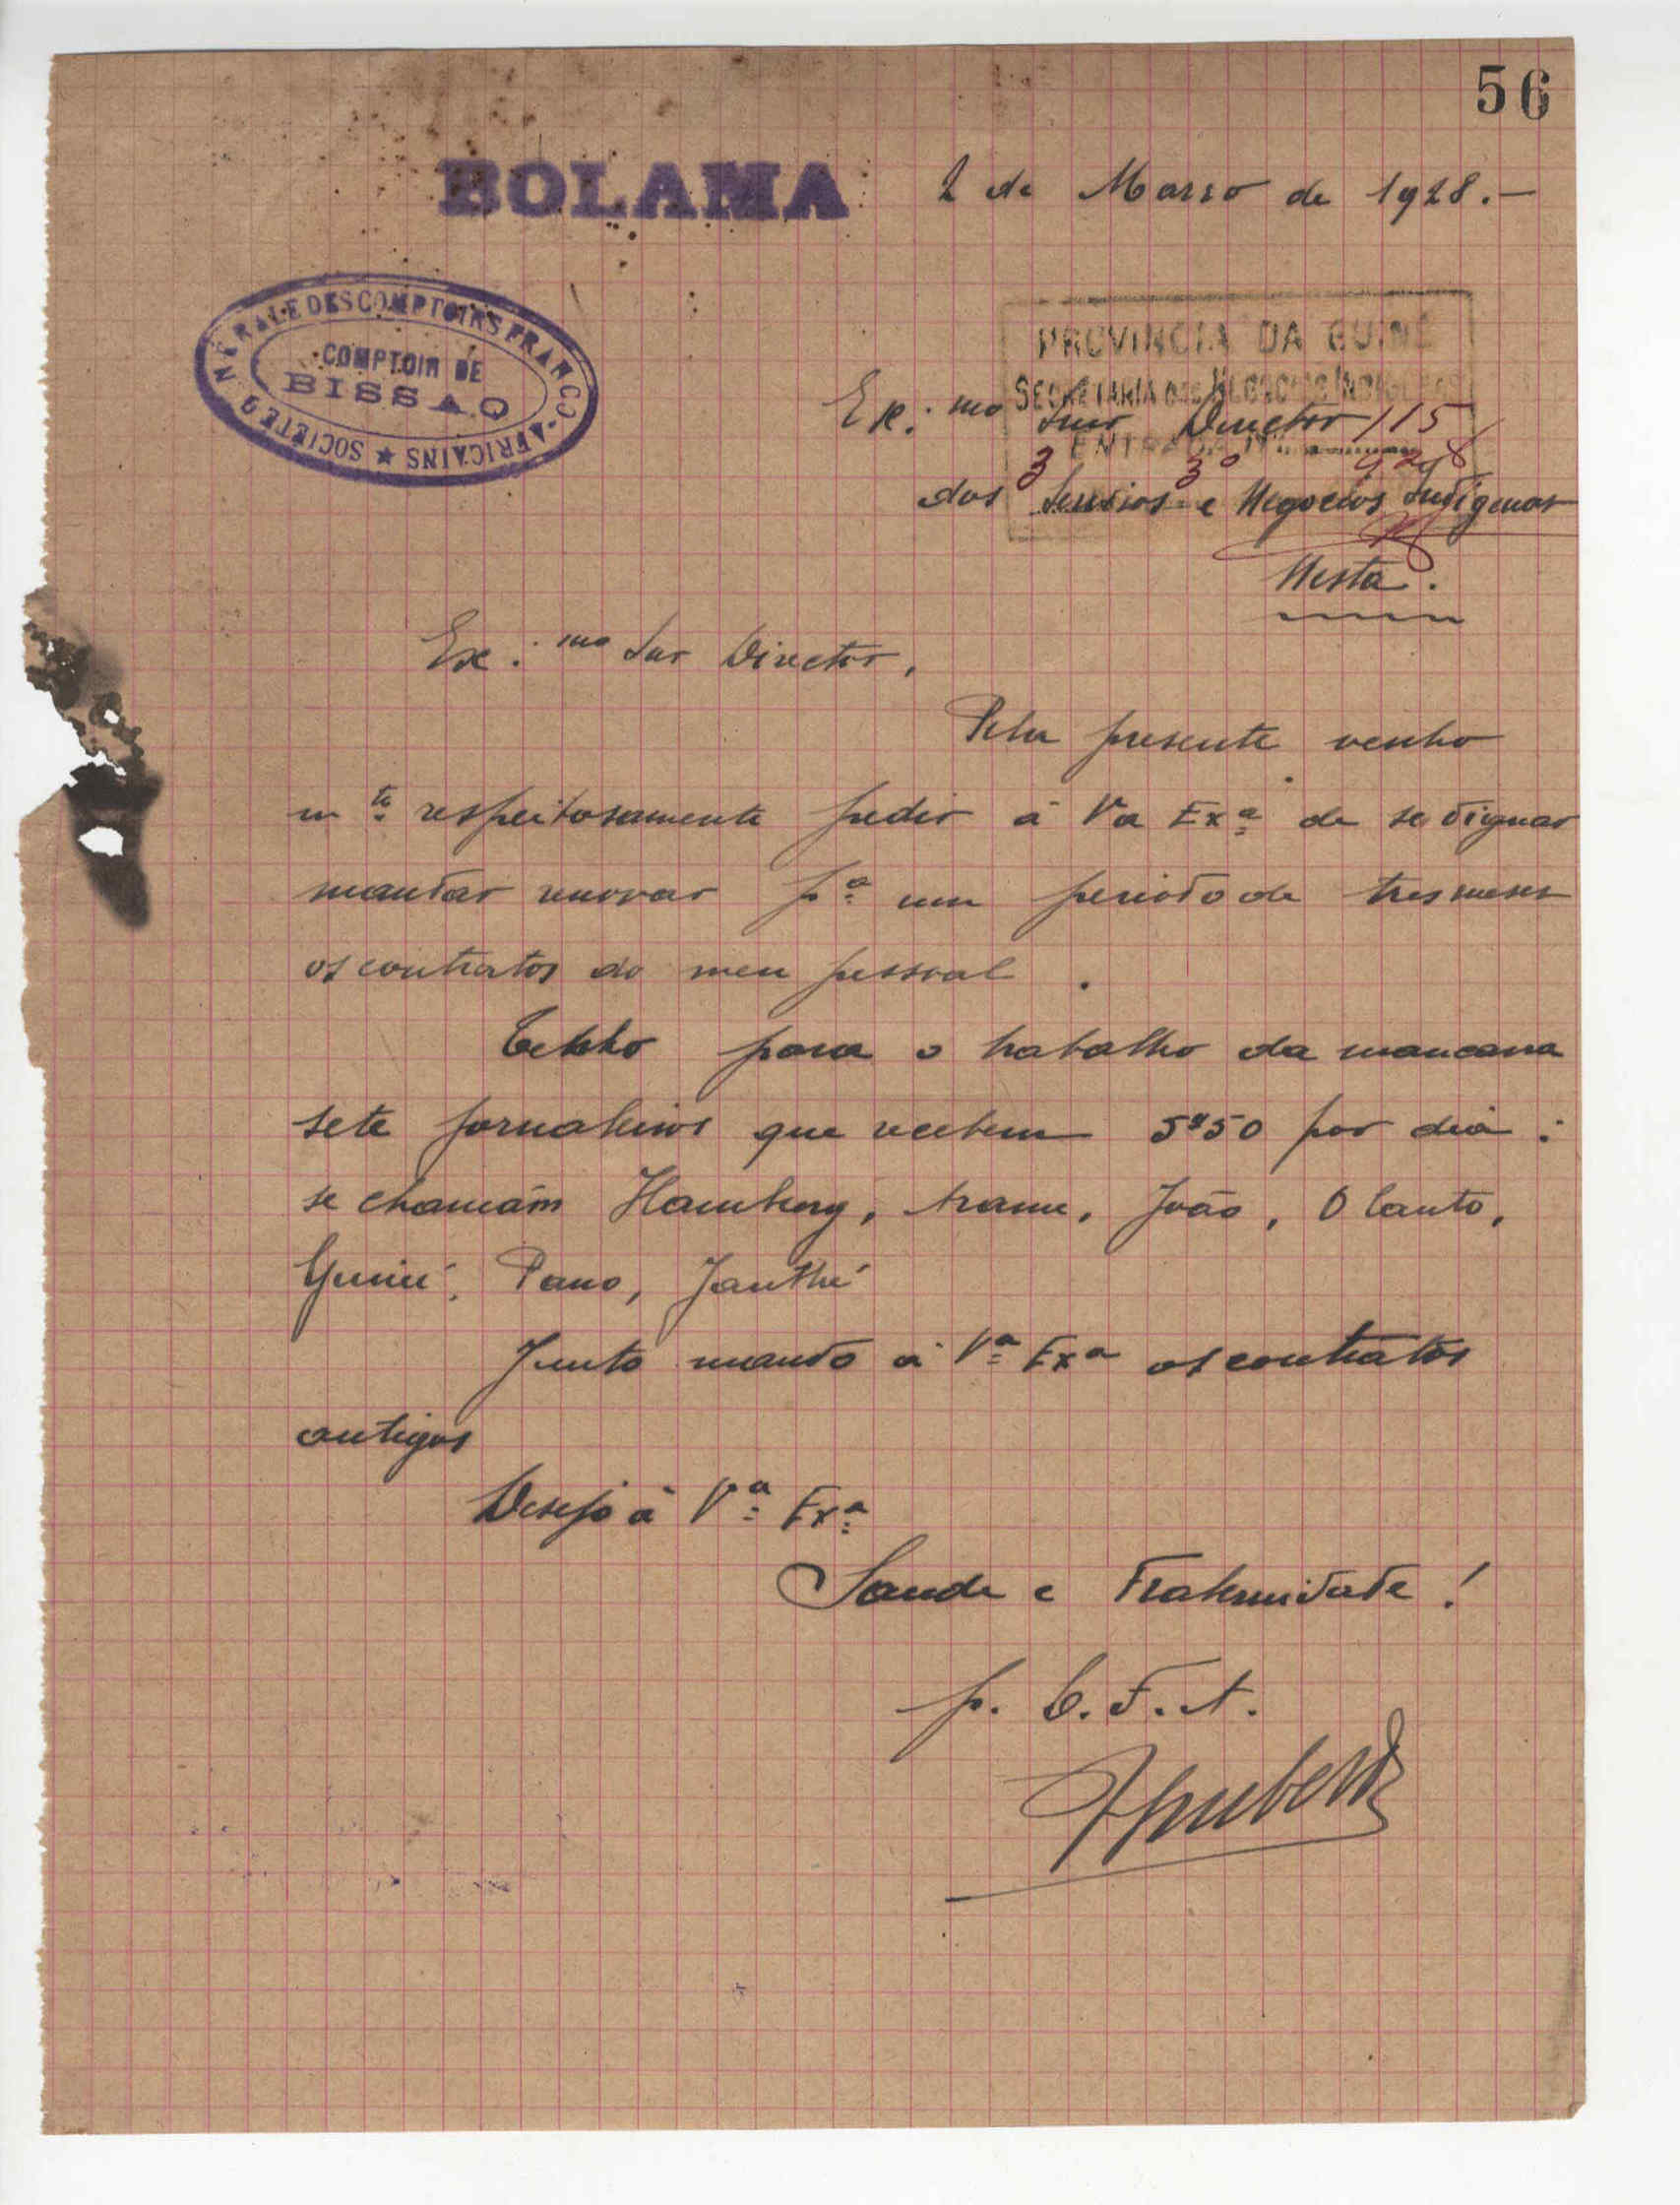 56
BOLAMA 2 de Marso de 1928.-
SOCIÉTÉ GÉNÉRALE DES COMPTOIRS FRANCO-AFRICAINS ★
COMPTOIR DE
BISSAO
PROVINCIA DA GUINÉ
SECRETARIA DOS NEGOCIOS INDIGENAS
ENTRADA Nº 115
3 3º 928
Ex.mo Snr Director
dos Servisos e Negocios Indigenas
Nesta.
Exc.mo Snr Director,
Pela presente venho
mto respeitosamente pedir á Va Exª de se dignar
mandar renovar pª um periodo de tres meses
os contratos do meu pessoal.
Tenho para o trabalho da mancarra
sete jornaleiros que recebem 5$50 por dia :
se chamam Hamberg, , João, O Canto,
Pano, Janthé
Junto mando á Vª Exª os contratos
antigos
Desejo á Vª Exª
Saude e Fraternidade !
p. C.F.A.